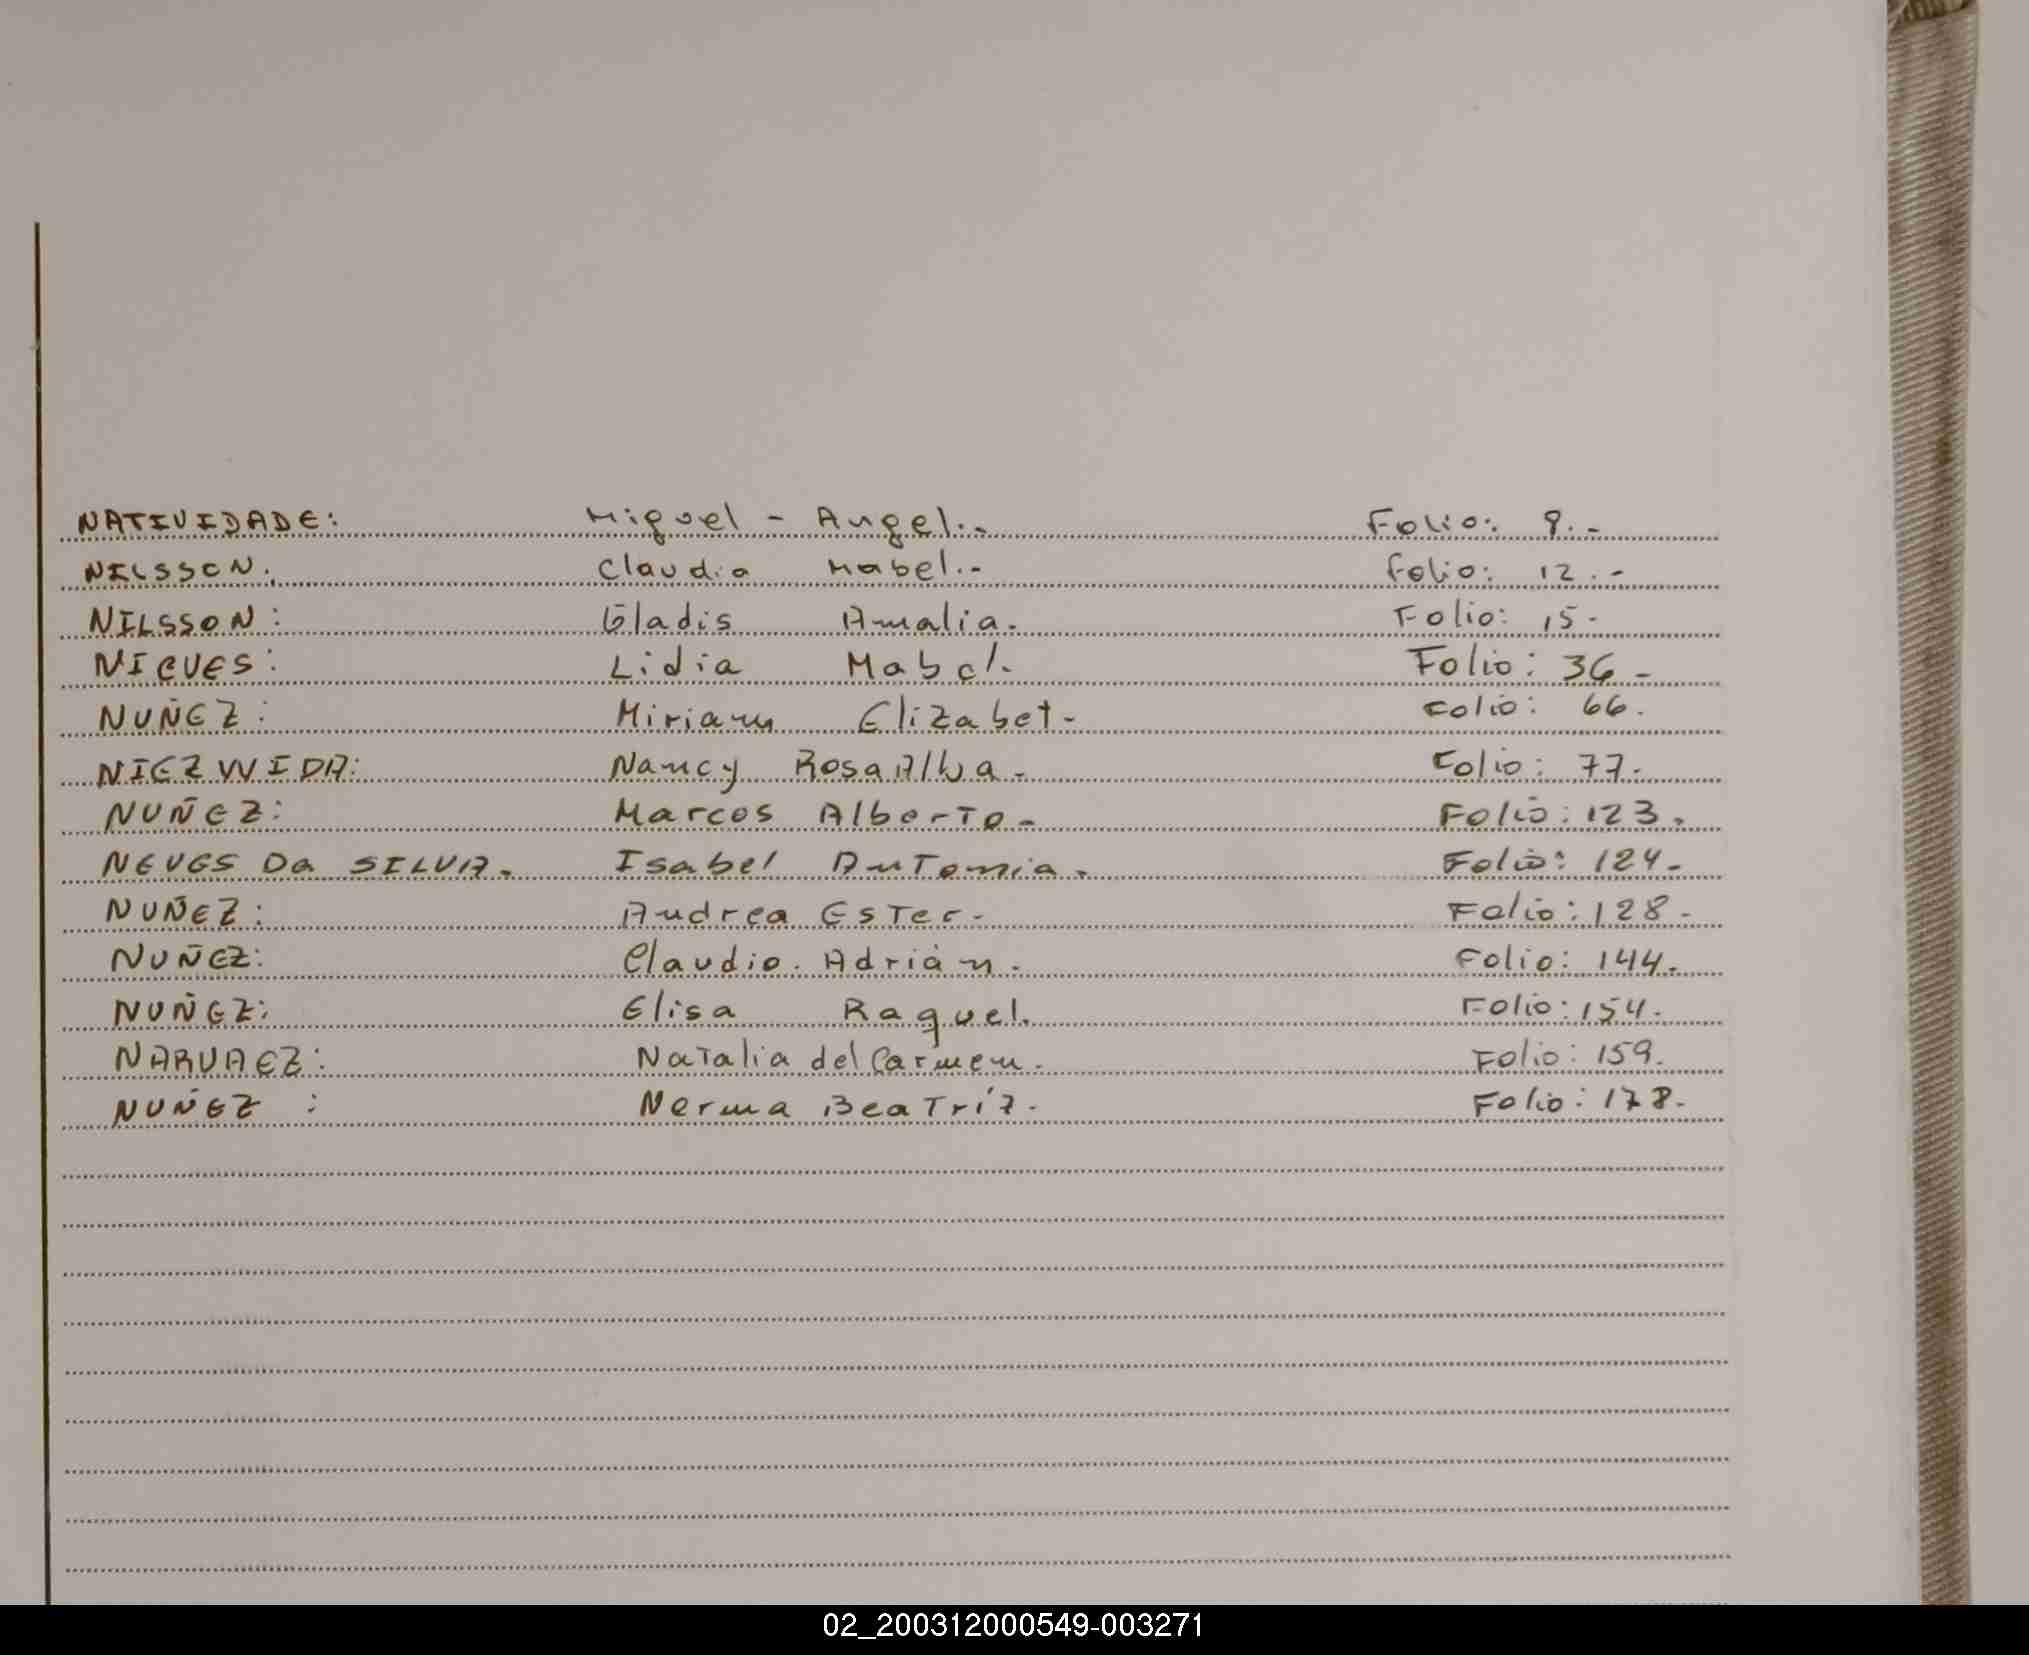 NATIVIDADE: Miguel - Angel.- Folio: 9.-
NILSSON: Claudia Mabel.- Folio: 12.-
NILSSON: Gladis Amalia. Folio: 15-
NIEVES: Lidia Mabel. Folio: 36-
NUÑEZ: Miriam Elizabet- Folio: 66.
NIEZWIDA: Nancy RosaAlba- Folio: 77-
NUÑEZ: Marcos Alberto- Folio: 123.
NEVES Da SILVA. Isabel Antonia. Folio: 124-
NUÑEZ: Andrea Ester- Folio: 128-
NUÑEZ: Claudio. Adrián. Folio: 144.
NUÑEZ: Elisa Raquel. Folio: 154.
NARVAEZ: Natalia del Carmen. Folio: 159.
NUÑEZ : Nerma Beatríz- Folio: 178-
02_200312000549-003271